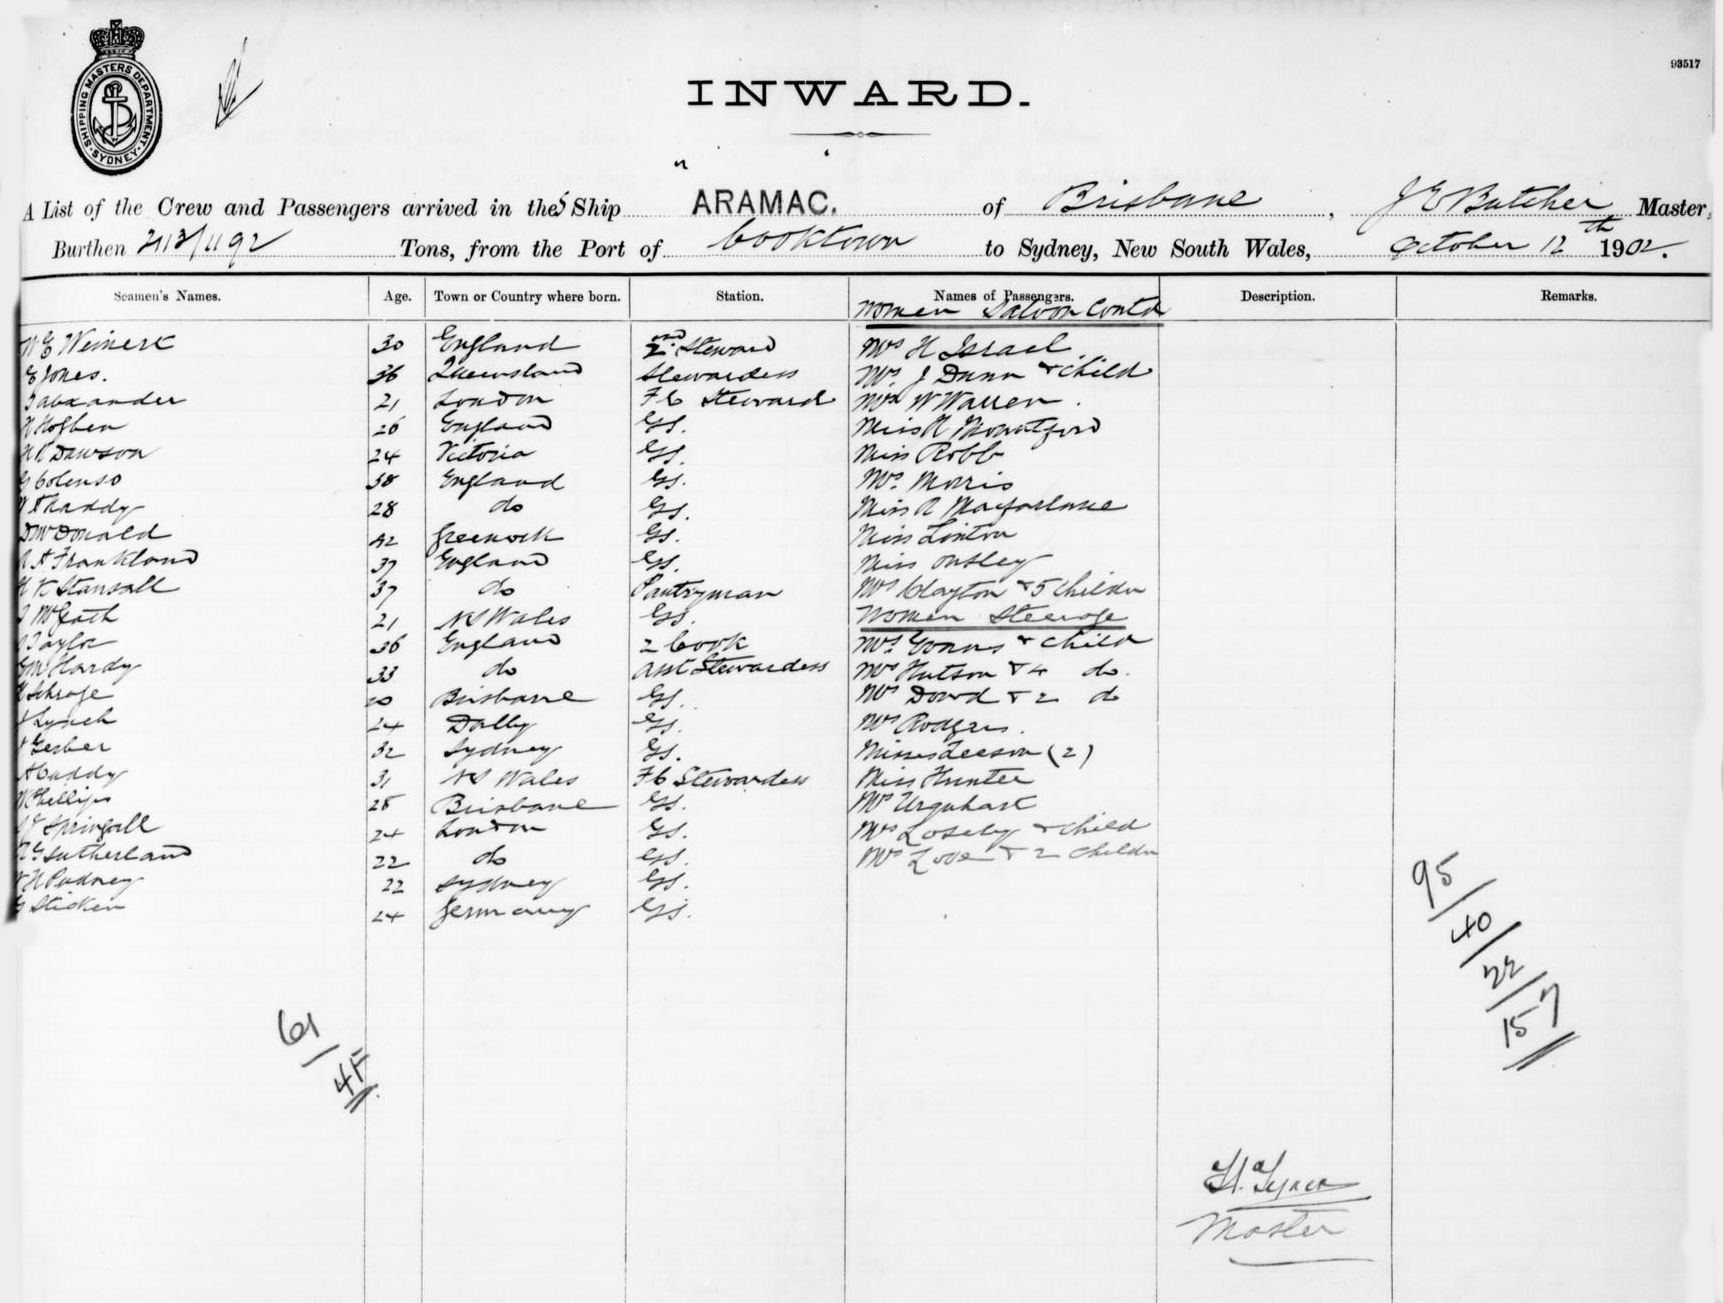 93517
SHIPPING MASTERS DEPARTMENT
SYDNEY
INWARD.
A List of the Crew and Passengers arrived in the S Ship " ARAMAC. of Brisbane, J E Butcher Master,
Burthen 2113/1192 Tons, from the Port of Cooktown to Sydney, New South Wales, October 12th 1902.
Seamen's Names. Age. Town or Country where born. Station. Names of Passengers. Description. Remarks.
Women Saloon Contd
W E Weinert 30 England 2nd Steward Mrs H Israel
E Jones. 36 Queensland Stewardess Mrs J Dunn & Child
21 London F C Steward Mrs W Warren.
H Hogben 26 England GS. Miss R Mountford
H R Dawson 24 Victoria GS. Miss Robb
G Colenso 38 England GS. Mrs Morris
Thaddy 28 do GS. Miss A Macfarlane
D McDonald 42 Greenock GS. Miss Linton
A H Frankland 37 England GS. Miss Ousley
H K Stansall 37 do Pantryman Mrs Clayton & 5 Childn
J McGrath 21 N S Wales GS. Women Steerage
J Taylor 36 England 2 Cook Mrs Evans & Child
G M Hardy 33 do asst Stewardess Mrs Hutson & 4 do.
H Schrage 20 Brisbane GS. Mrs Dowd & 2 d
Lynch 24 Dalby GS. Mrs Rodgers.
Gerber 32 Sydney GS. Misses Leeson (2)
A Caddy 31 N S Wales F C Stewardess Miss Hunter
W Phillips 28 Brisbane GS. Mrs Urquhart
W Springall 24 London GS. Mrs Losely & Child
Sutherland 22 do GS. Mrs Love & 2 Childn
H Pudney 22 Sydney GS.
G Sticken 24 Germany GS.
95/
40/
22/
157
61/
4F
Master